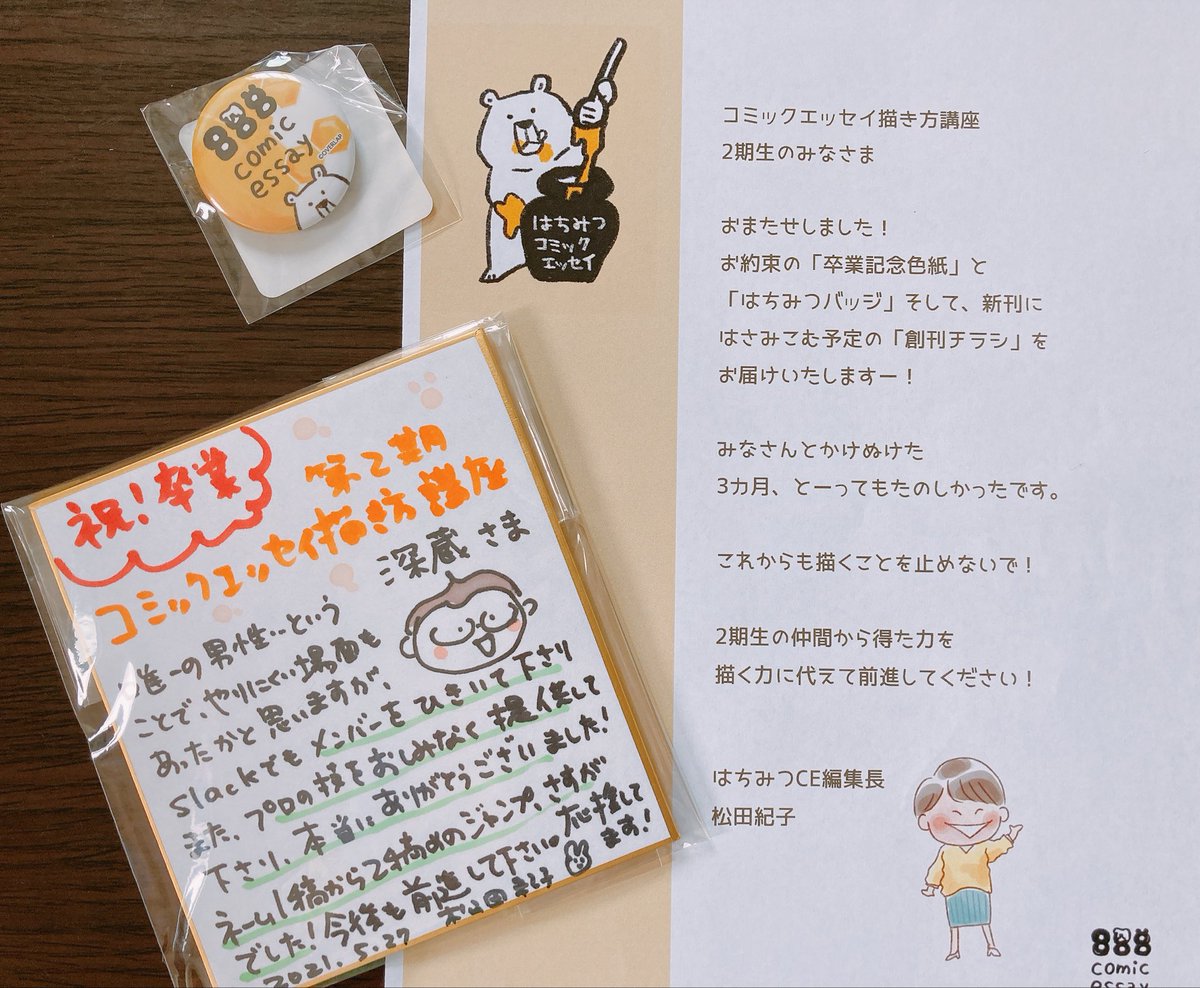 888
comic
essay
©OVERLAP
はちみつ
コミック
エッセイ
コミックエッセイ描き方講座
2期生のみなさま
おまたせしました！
お約束の「卒業記念色紙」と
「はちみつバッジ」そして、新刊に
はさみこむ予定の「創刊チラシ」を
お届けいたしますー！
みなさんとかけぬけた
3カ月、とーってもたのしかったです。
これからも描くことを止めないで！
2期生の仲間から得た力を
描く力に代えて前進してください！
はちみつCE編集長
松田紀子
888
comic
essay
祝！卒業
第2期
コミックエッセイ描き方講座
深蔵さま
唯一の男性…という
ことで、やりにくい場面も
あったかと思いますが、
slackでもメンバーをひきいて下さり
また、プロの技をおしみなく提供して
下さり、本当にありがとうございました！
ネーム1稿から2稿めのジャンプ、さすが
でした！今後も前進して下さい。応援して
ます！
2021.5.27
松田紀子